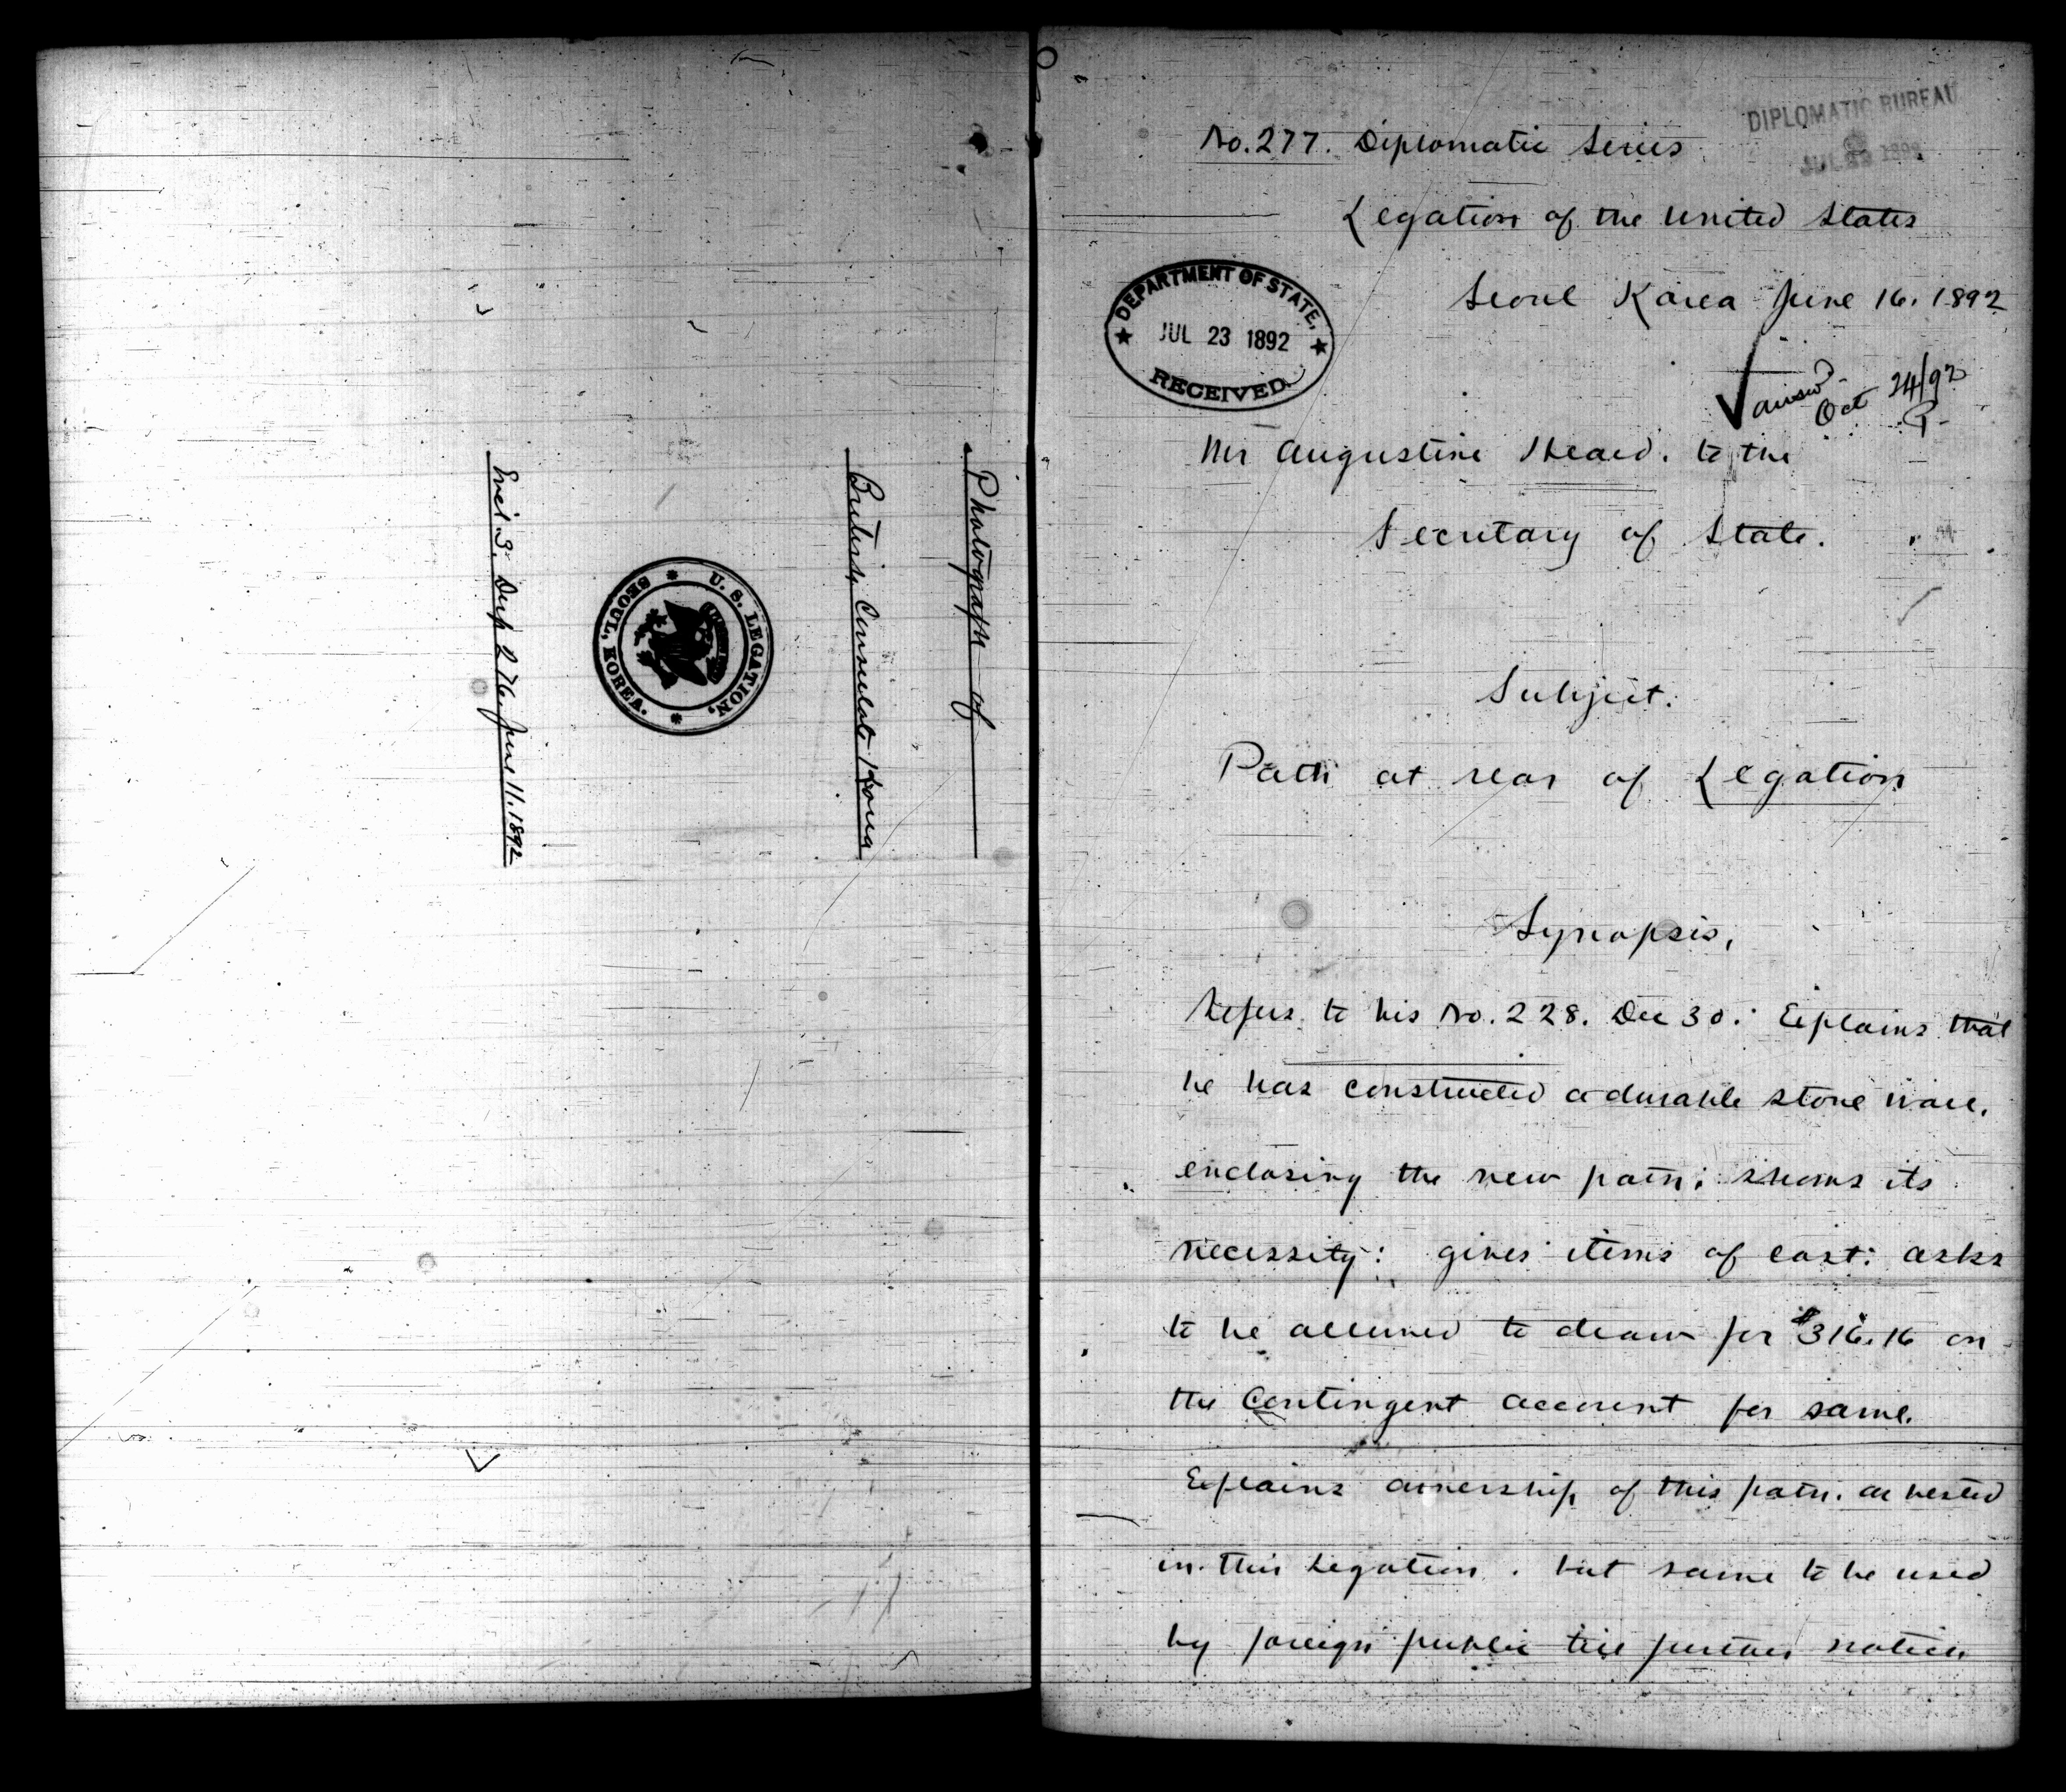 Photograph of
British Consulate
U. S. LEGATION,
SEOUL, KOREA.
Encl 3. Dup 276. June 11. 1892
DIPLOMATIC BUREAU
JUL 23 1892
No. 277. Diplomatic Series
Legation of the United States
Seoul Korea June 16. 1892
DEPARTMENT OF STATE,
JUL 23 1892
RECEIVED
answd
Oct 24/92
Mr Augustine Heard. to the
Secretary of State.
Subject.
Path at rear of Legation
Synopsis.
Refers to his No. 228. Dec 30: Explains that
he has constructed a durable stone wall,
enclosing the new path; shows its
necessity: gives items of cost: asks
to be allowed to draw for $316.16 on
the Contingent account for same.
Explains ownership of this path. as vested
in this Legation. but same to be used
by foreign public till further notice